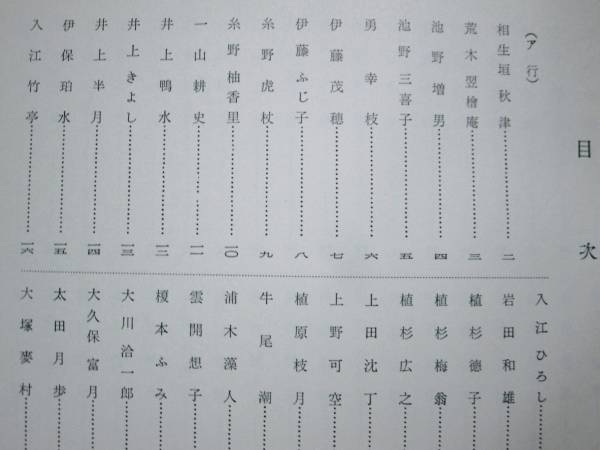 目次
(ア行)
相生垣秋津……二
荒木翌檜庵……三
池野増男……四
池野三喜子……五
勇幸枝……六
伊藤茂穂……七
伊藤ふじ子……八
糸野虎杖……九
糸野柚香里……一〇
一山耕史……一一
井上鴨水……一二
井上きよし……一三
井上半月……一四
伊保珀水……一五
入江竹亭……一六
入江ひろし……
岩田和雄……
植杉徳子……
植杉梅翁……
植杉広之……
上田沈丁……
上野可空……
植原枝月……
牛尾潮……
浦木藻人……
雲開想子……
榎本ふみ……
大川治一郎……
大久保富月……
太田月歩……
大塚麥村……